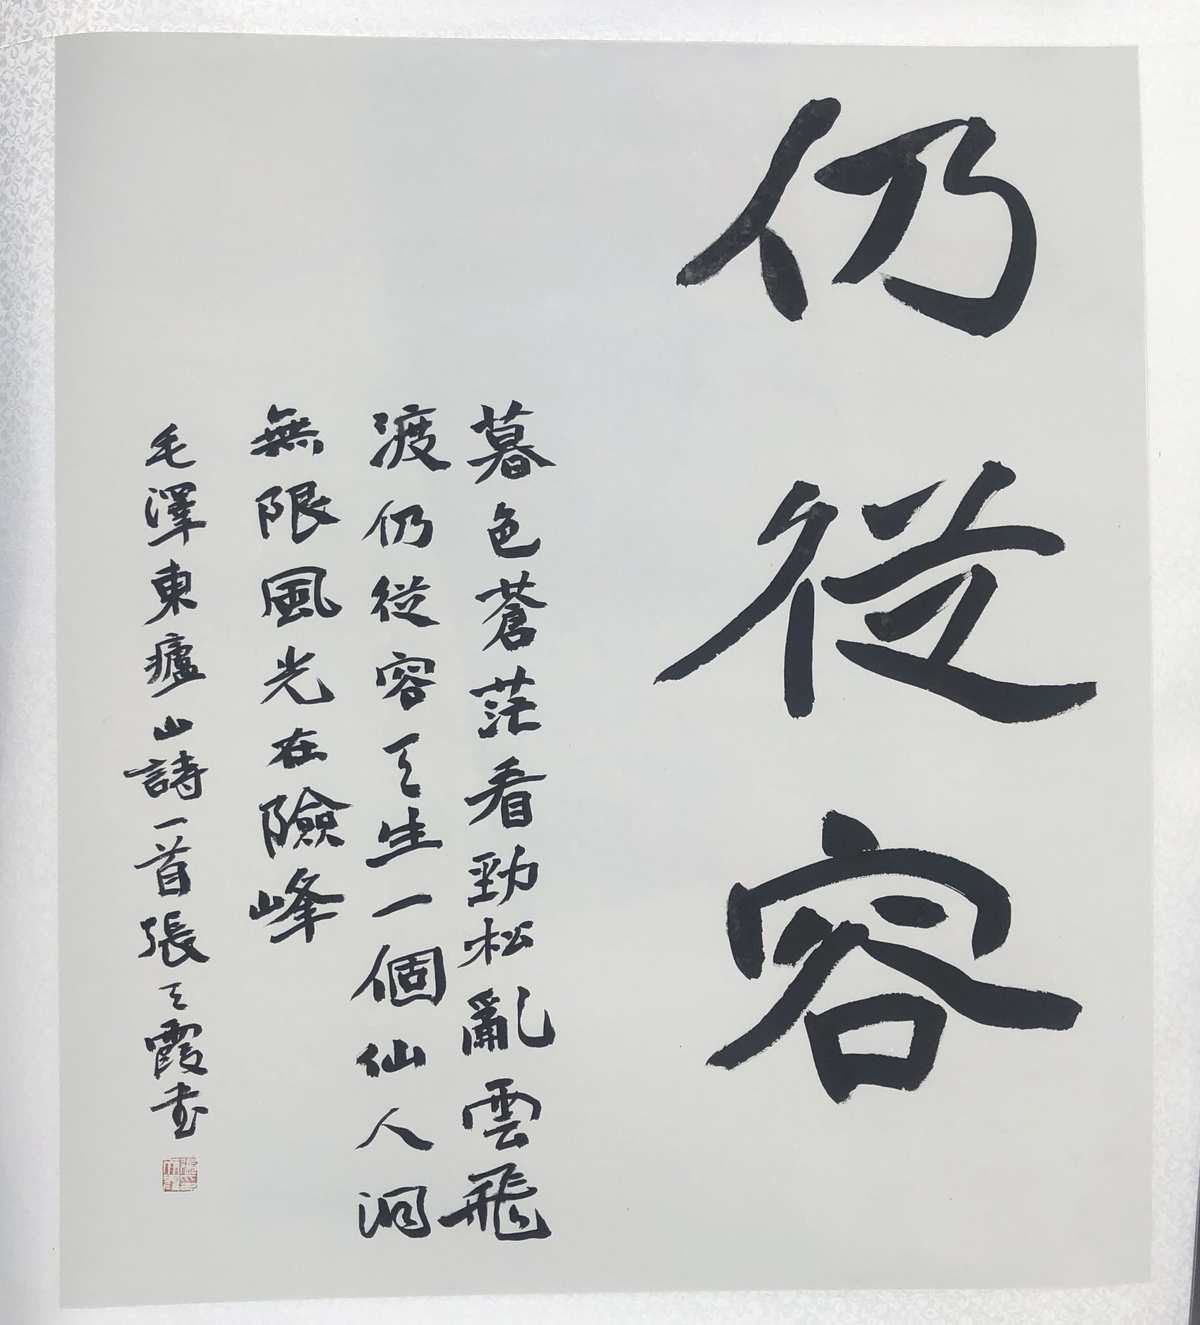 仍從容
暮色蒼茫看勁松亂雲飛
渡仍從容天生一個仙人洞
無限風光在險峰
毛澤東廬山詩一首張天霞书